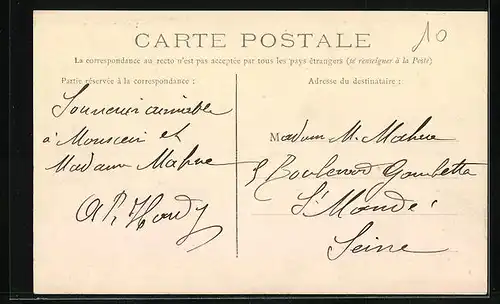 10
CARTE POSTALE
La correspondance au recto n'est pas acceptée par tous les pays étrangers (se renseigner à la Poste)
Partie réservée à la correspondance :
Souvenir aimable
à Monsieur et
Madame Mahue
Hardy
Adresse du destinataire :
Madame M. Mahue
5 Boulevard Gambetta
St Mandé
Seine